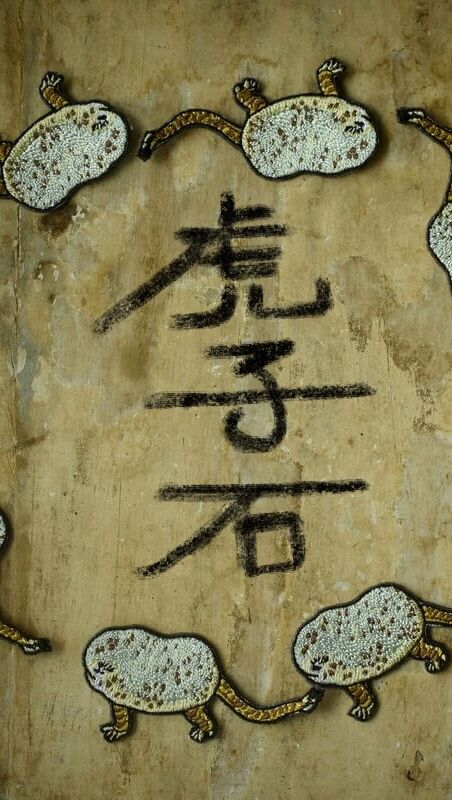 虎
子
石